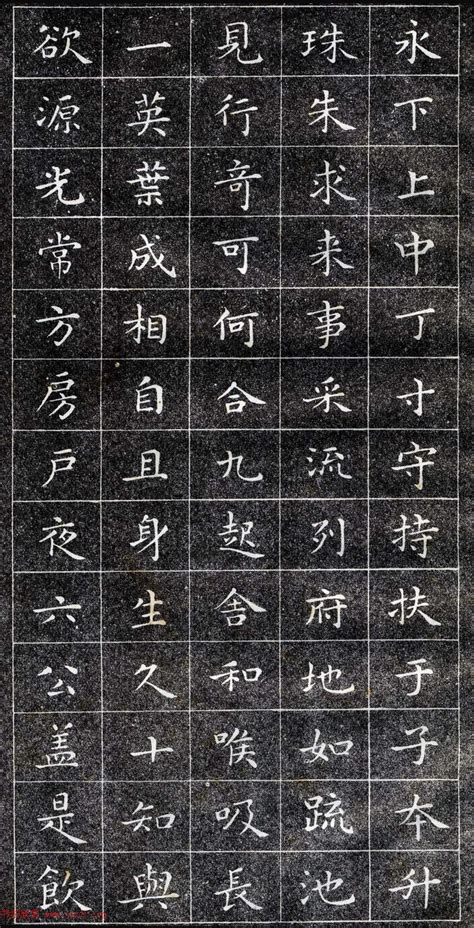 永下上中丁寸守持扶于子本升
珠朱求来事采流列府地如疏池
見行奇可何合九起舍和唉吸長
一英葉成相自且身生久十知與
欲源光常方房戶夜六公盖是飲